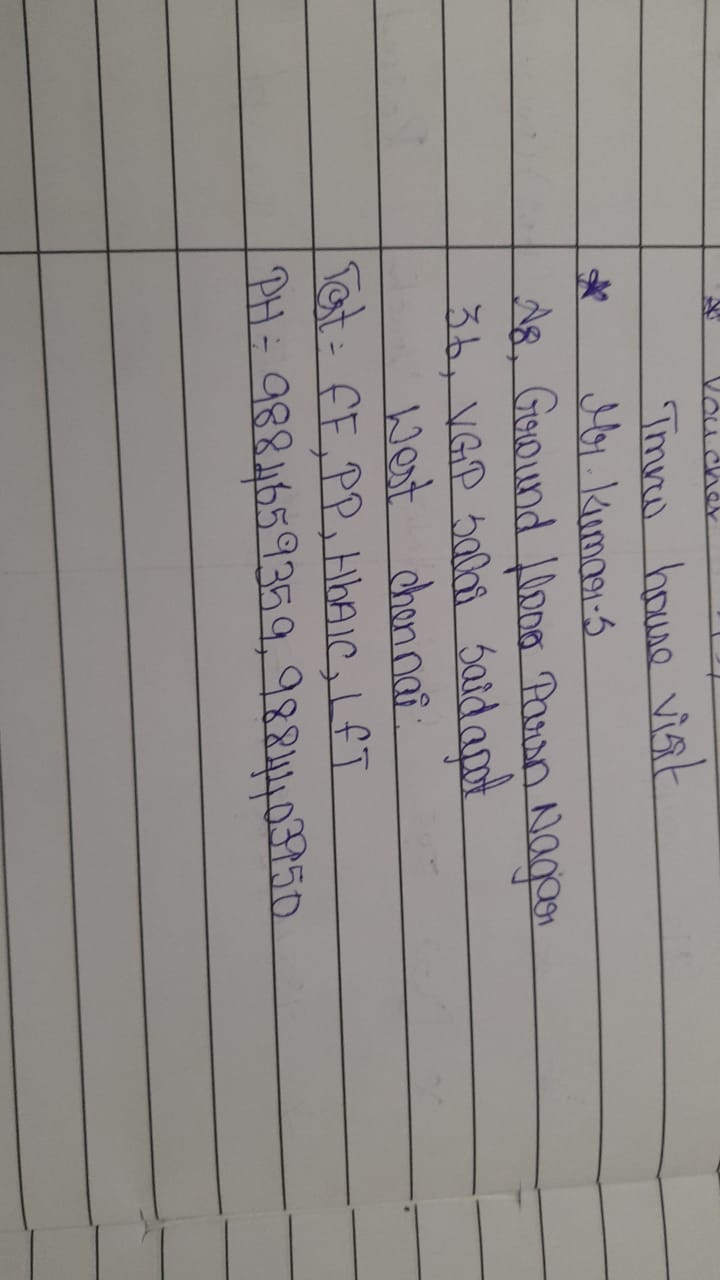 * Voucher
Tmrw house visit
* Mr. Kumar.S
A8, Ground floor Parsn Nagar
36, VGP Salai Saidapet
West chennai.
Test = FF, PP, HbA1C, LFT
PH = 9884659359, 9884403950